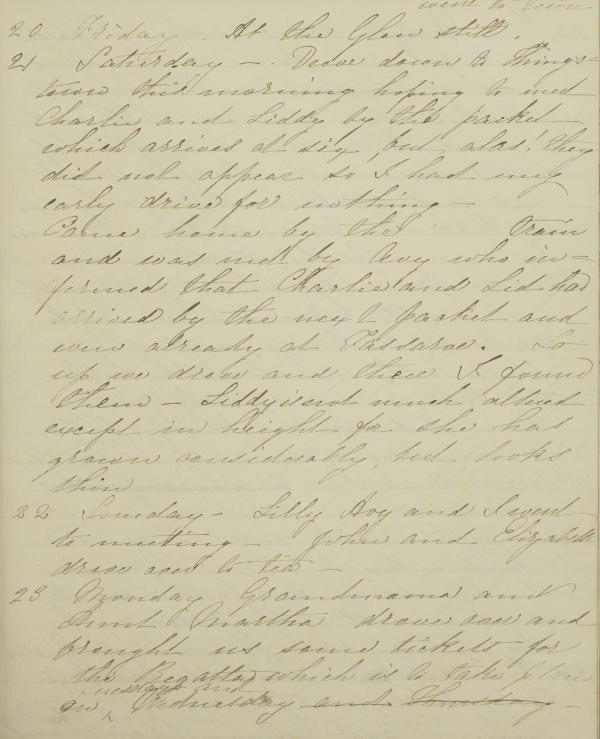 went to town
20 Friday. At the Glen still.
21 Saturday -. Drove down to Kings=
town this morning hoping to meet
Charlie and Liddy by the packet
which arrives at six, but alas! they
did not appear so I had my
early drive for nothing -
Came home by the train
and was met by Avy who in=
formed that Charlie and Lid had
arrived by the next packet and
were already at Fassaroe. So
up we drove and there I found
them - Liddy is not much altered
except in height for she has
grown considerably, but looks
thin
22 Sunday - Lilly Avy and I went
to meeting - John and Elizabeth
drove over to tea -
23 Monday Grandmama and
Aunt Martha drove over and
brought us some tickets for
the Regatta which is to take place
Tuesday and
on ^ Wednesday and Thursday -